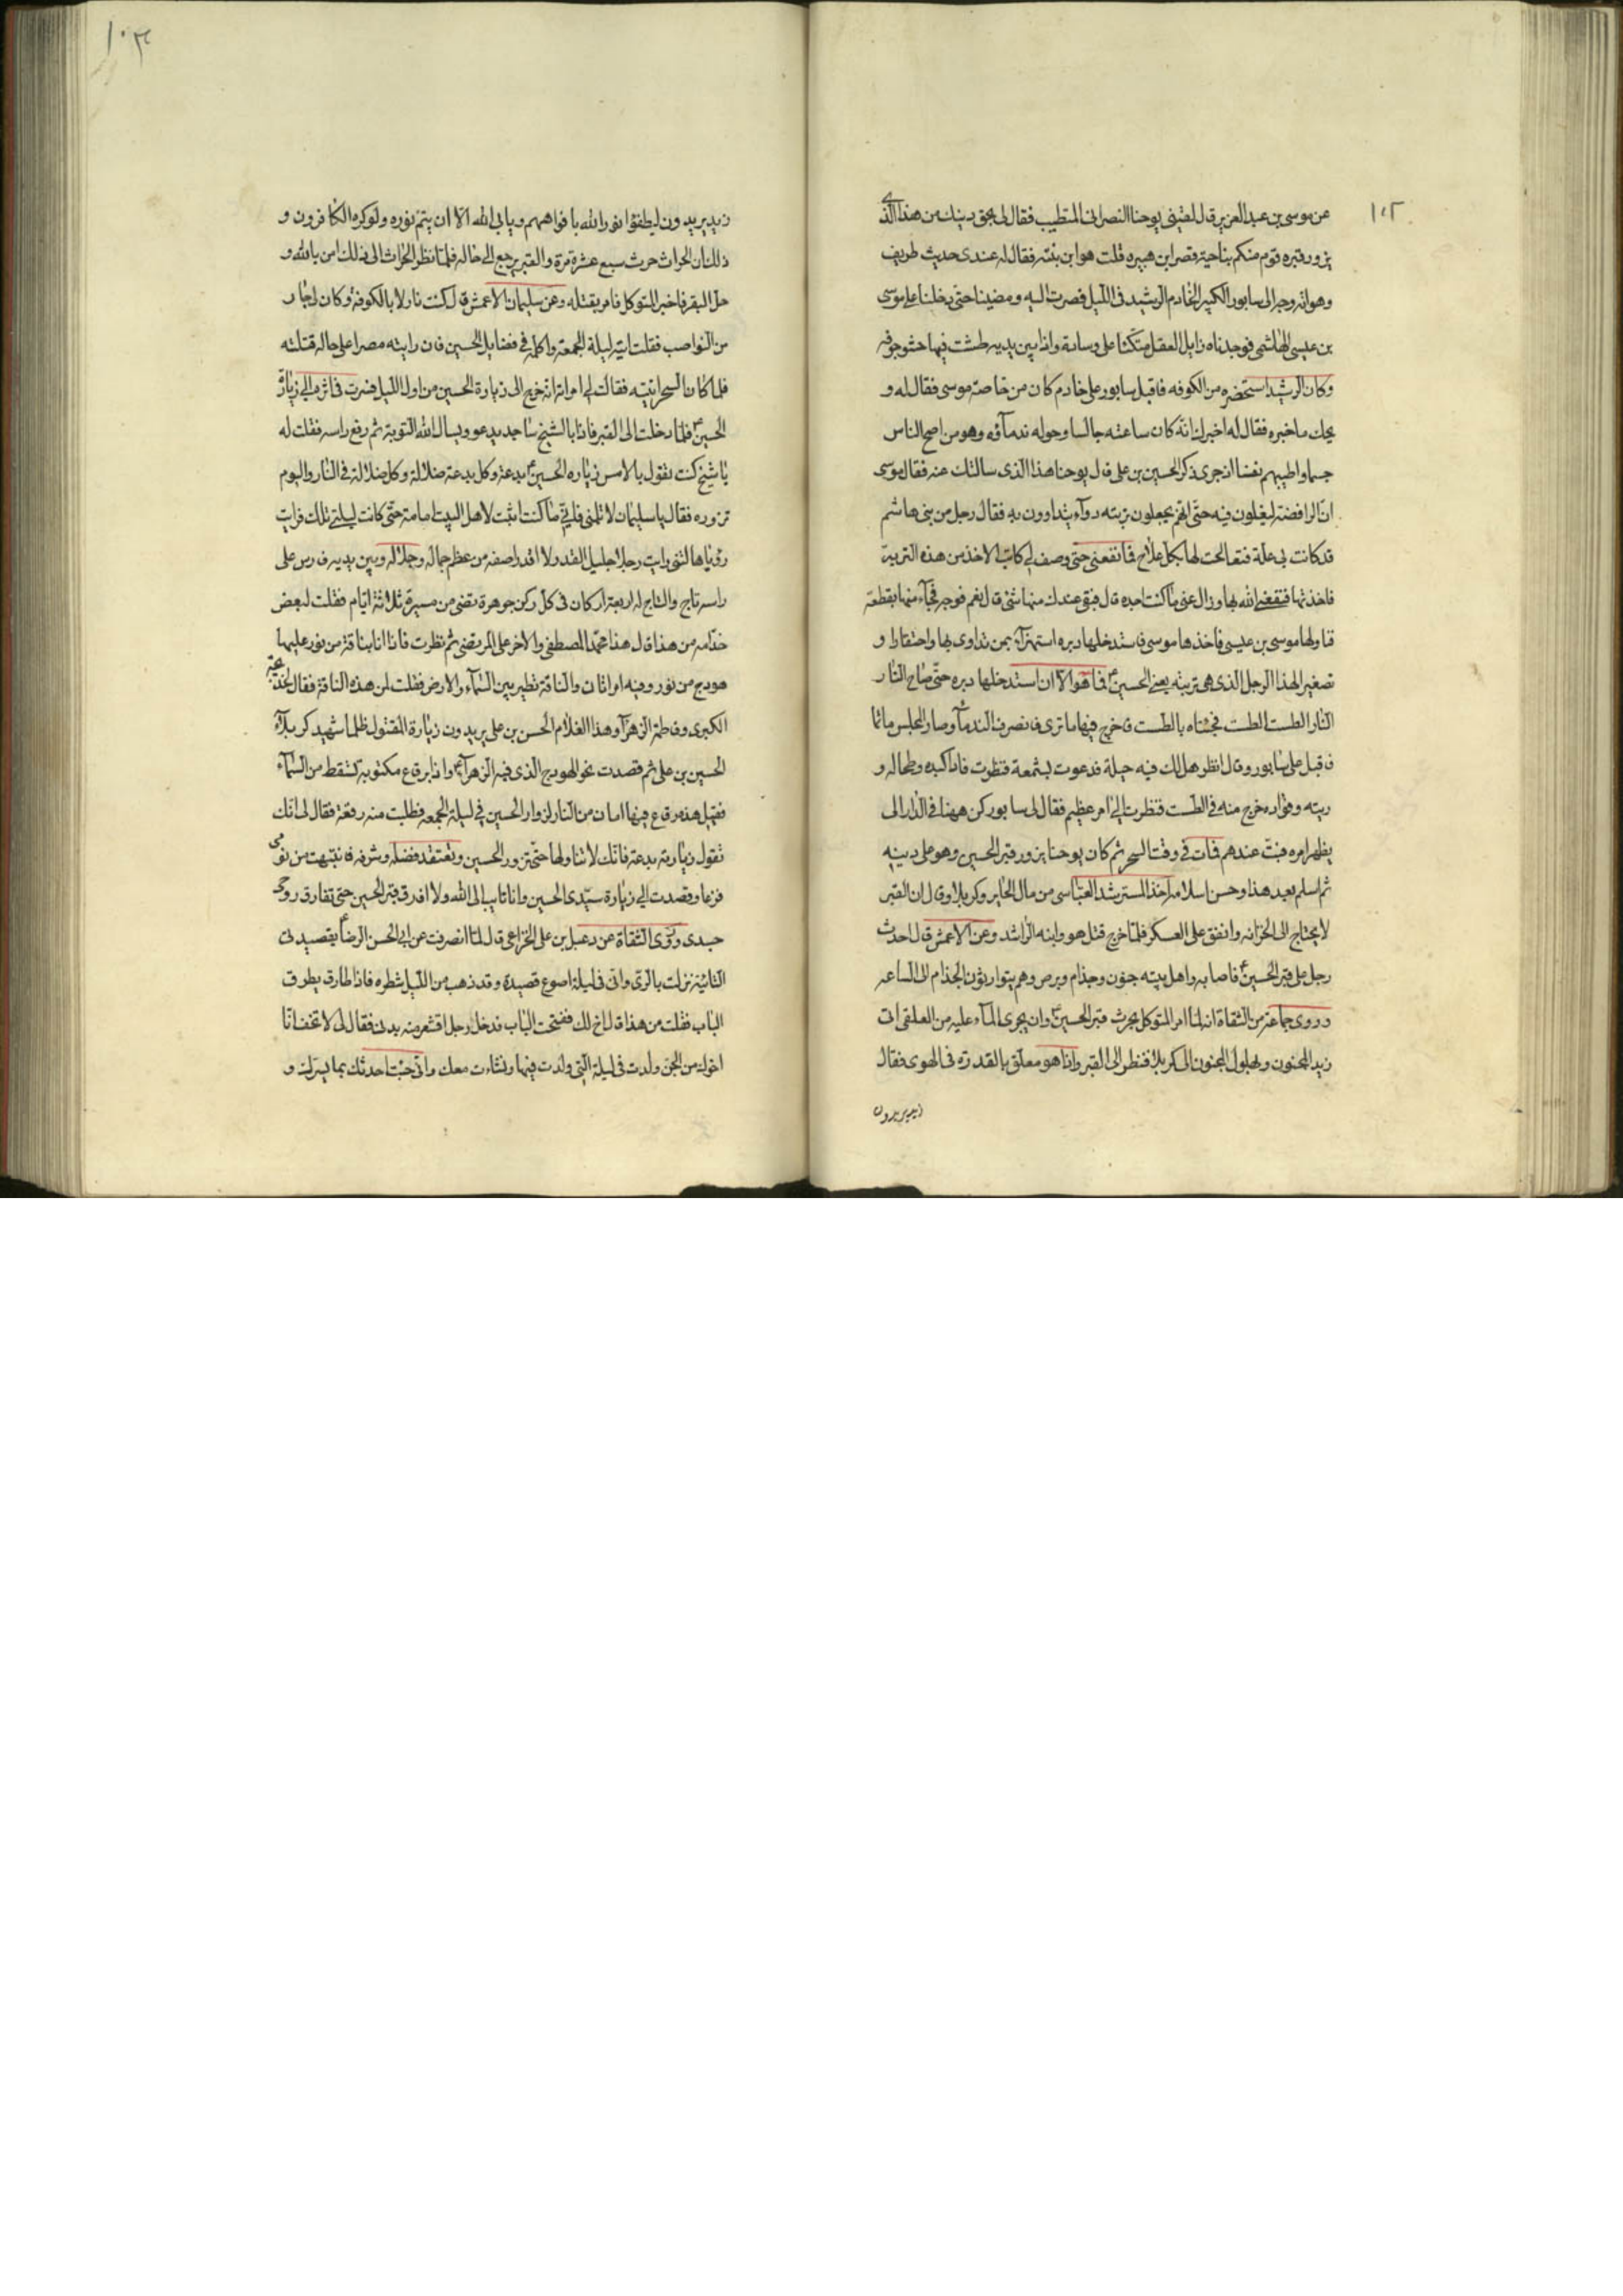 ١٠٢
عن موسى بن عبد العزيز قال لقينى يوحنا النصرانى المتطيب فقال لى بحق دينك من هذا الذى
يزور قبره قوم منكم بناحية قصر ابن هبيره قلت هو ابن بنته فقال له عندى حديث طريف
وهو انه وجه الى سابور الكبير الخادم الرشيد فى الليل فصرت اليه ومضينا حتى دخلنا على موسى
بن عيسى الهاشمى فوجدناه زايل العقل متكئا على وسادة واذا بين يديه طشت فيها حشو جوفه
وكان الرشيد استحضره من الكوفه فاقبل سابور على خادم كان من خاصة موسى فقال له و
يحك ما خبره فقال له اخبرك انه كان ساعته جالسا وحوله ندمآؤه وهو من اصح الناس
جسما واطيبهم نفسا اذ جرى ذكر الحسين بن على قال يوحنا هذا الذى سالتك عنه فقال موسى
ان الرافضة ليغلون فيه حتى انهم يجعلون تربته دوآء يتداوون به فقال رجل من بنى هاشم
قد كانت بى علة فتعالجت لها بكل علاج فما نفعنى حتى وصف لى كاتب الاخذ من هذه التربة
فاخذتها فنفعنى الله بها وزال عنى ما كنت اجده قال فبقى عندك منها شئ قال نعم فوجه فجآء منها بقطعة
فناولها موسى بن عيسى فاخذها موسى فاستدخلها دبره استهزآء بمن تداوى بها واحتقارا و
تصغيرا لهذا الرجل الذى هى تربته يعنى الحسين فما هو الا ان استدخلها دبره حتى صاح النار
النار الطست الطست فجئناه بالطست فاخرج فيها ما ترى فانصرف الندمآء وصار المجلس ماتما
فاقبل على سابور وقال انظر هل لك فيه حيلة فدعوت بشمعة فنظرت فاذا كبده وطحاله و
ريته وفؤاده خرج منه فى الطست فنظرت الى امر عظيم فقال لى سابور كن ههنا فى الدار الى
يظهر امره فبت عندهم فمات فى وقت السحر ثم كان يوحنا يزور قبر الحسين وهو على دينه
ثم اسلم بعد هذا وحسن اسلامه اخذ المسترشد العباسى من مال الحاير وكربلا وقال ان القبر
لا يحتاج الى الخزانه وانفق على العسكر فلما خرج قتل هو وابنه الراشد وعن الاعمش قال احدث
رجل على قبر الحسين فاصابه واهل بيته جنون وجذام وبرص وهم يتوارثون الجذام الى الساعه
وروى جماعة من الثقاة انه لما امر المتوكل بحرث قبر الحسين وان يجرى المآء عليه من العلقمى اتى
زيد المجنون وبهلول المجنون الى كربلا فنظر الى القبر واذا هو معلق بالقدرة فى الهوى فقال
زيد يريدون
١٠٣
زيد يريدون ليطفؤا نور الله بافواههم ويابى الله الا ان يتم نوره ولو كره الكافرون و
ذلك ان الحراث حرث سبع عشرة مرة والقبر يرجع الى حاله فلما نظر الحراث الى ذلك امن بالله و
حل البقر فاخبر المتوكل فامر بقتله وعن سليمان الاعمش قال كنت نازلا بالكوفة وكان لى جار
من النواصب فقلت ليلة الجمعة واكلمه فى فضايل الحسين فان رايته مصرا على حاله قتلته
فلما كان السحر اتيته فقالت لى امراته انه خرج الى زيارة الحسين من اول الليل فسرت فى اثره الى زيارة
الحسين فلما دخلت الى القبر فاذا بالشيخ ساجد يدعو ويسال الله التوبة ثم رفع راسه فقلت له
يا شيخ كنت تقول بالامس زيارة الحسين بدعة وكل بدعة ضلالة وكل ضلالة فى النار واليوم
تزوره فقال يا سليمان لا تلمنى فانى ما كنت اثبت لاهل البيت امامة حتى كانت ليلتى تلك فرايت
رؤيا هالتنى رايت رجلا جليل القدر لا اقدر اصفه من عظم جماله وجلاله وبين يديه فارس على
راسه تاج والتاج له اربعة اركان فى كل ركن جوهرة تضئ من مسيرة ثلاثة ايام فقلت لبعض
خدامه من هذا قال هذا محمد المصطفى والاخر على المرتضى ثم نظرت فاذا انا بناقة من نور عليها
هودج من نور وفيه امراتان والناقة تطير بين السمآء والارض فقلت لمن هذه الناقة فقال لخديجة
الكبرى وفاطمة الزهرآء وهذا الغلام الحسن بن على يريدون زيارة المقتول ظلما شهيد كربلآء
الحسين بن على ثم قصدت نحو الهودج الذى فيه الزهرآء واذا برقاع مكتوبة تتسقط من السمآء
فقيل هذه رقاع فيها امان من النار لزوار الحسين فى ليلة الجمعه فطلبت منه رقعة فقال لى انك
تقول زيارته بدعة فانك لا تنالها حتى تزور الحسين وتعتقد فضله وشرفه فانتبهت من نومى
فزعا وقصدت الى زيارة سيدى الحسين وانا تايب الى الله ولا افارق قبر الحسين حتى تفارق روحى
جسدى وروى الثقاة عن دعبل بن على الخزاعى قال لما انصرفت عن ابى الحسن الرضا بقصيدتى
التائية نزلت بالرى وانى فى ليلة اصوغ قصيدة وقد ذهب من الليل شطره فاذا طارق يطرق
الباب فقلت من هذا قال اخ لك ففتحت الباب فدخل رجل اقشعر منه بدنى فقال لى لا تخف انا
اخوك من الجن ولدت فى ليلة التى ولدت فيها ونشات معك وانى جئت احدثك بما يسرك و